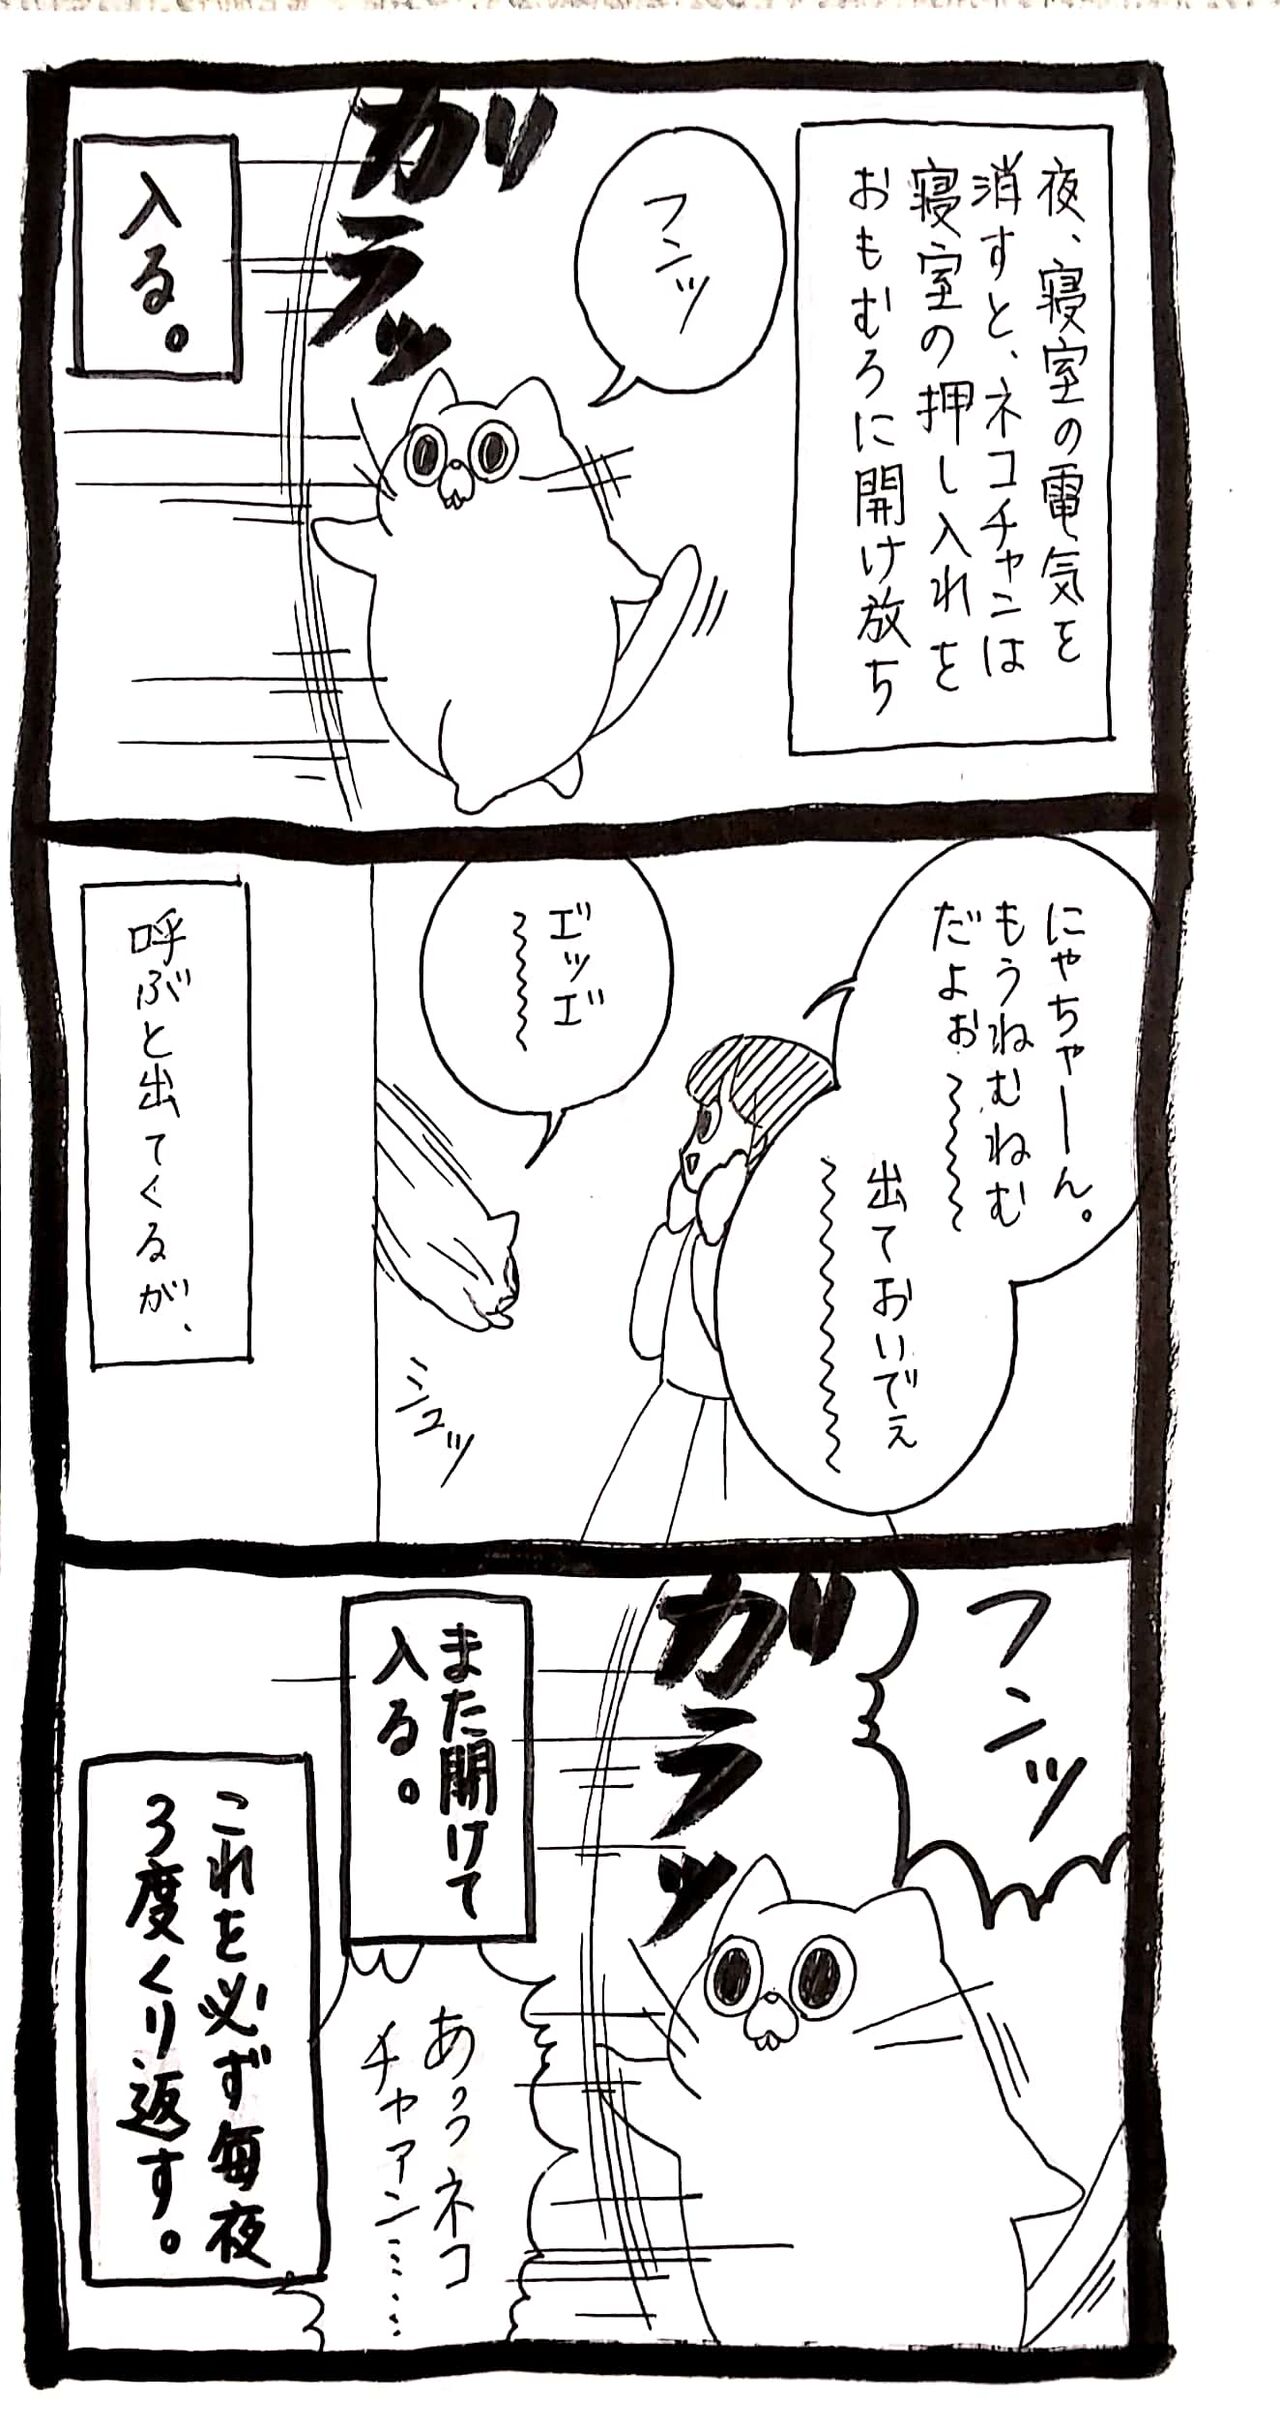 夜、寝室の電気を
消すと、ネコチャンは
寝室の押し入れを
おもむろに開け放ち
フンッ
ガラッ
入る。
にゃちゃーん。
もうねむねむ
だよぉ〜〜〜〜
出ておいでぇ
〜〜〜〜〜〜
エ゛ッエ゛
〜〜〜〜
シュッ
呼ぶと出てくるが、
フンッ
ガラッ
また開けて
入る。
あぅぅネコ
チャアン……
これを必ず毎夜
3度くり返す。